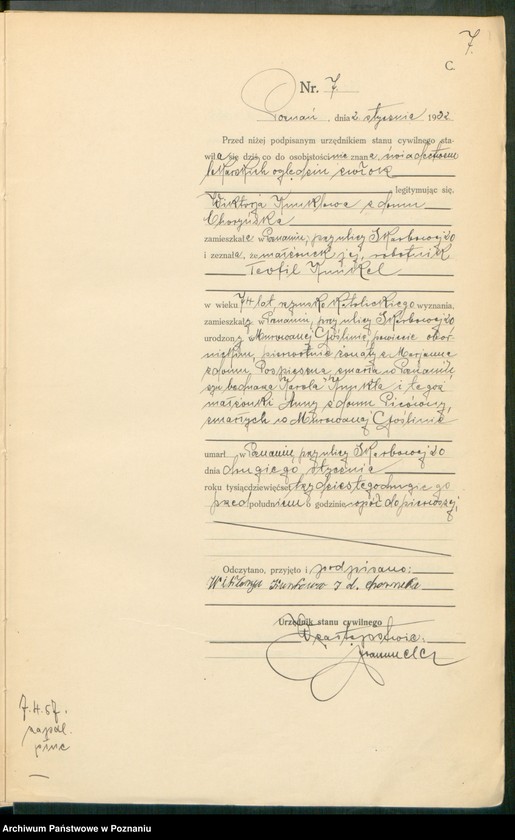 7.
C.
Nr. 7.
Poznań, dnia 2 stycznia 1932
Przed niżej podpisanym urzędnikiem stanu cywilnego sta-
wiła się dziś, co do osobistości znana świadectwem
lekarskich oględzin zwłok
legitymując się,
Wiktorja Kunklowa z domu
Chorzyńska
zamieszkała w Poznaniu, przy ulicy Skarbowej 20
i zeznała, że małżonek jej, robotnik
Teofil Kunkel
w wieku 74 lat, rzymsko katolickiego wyznania,
zamieszkały w Poznaniu, przy ulicy Skarbowej 20
urodzony w Murowanej Goślinie, powiecie obor-
nickim, pierwotnie żonaty z Marjanną
z domu Pospieszną zmarłą w Poznaniu,
syn bednarza Karola Kunkla i tegoż
małżonki Anny z domu
zmarłych w Murowanej Goślinie
umarł w Poznaniu, przy ulicy Skarbowej 20
dnia drugiego stycznia
roku tysiącdziewięćset trzydziestego drugiego
przed południem o godzinie wpół do pierwszej,
Odczytano, przyjęto i podpisano:
Wiktorya
Urzędnik stanu cywilnego
W zastępstwie:
7.4.57.
Archiwum Państwowe w Poznaniu